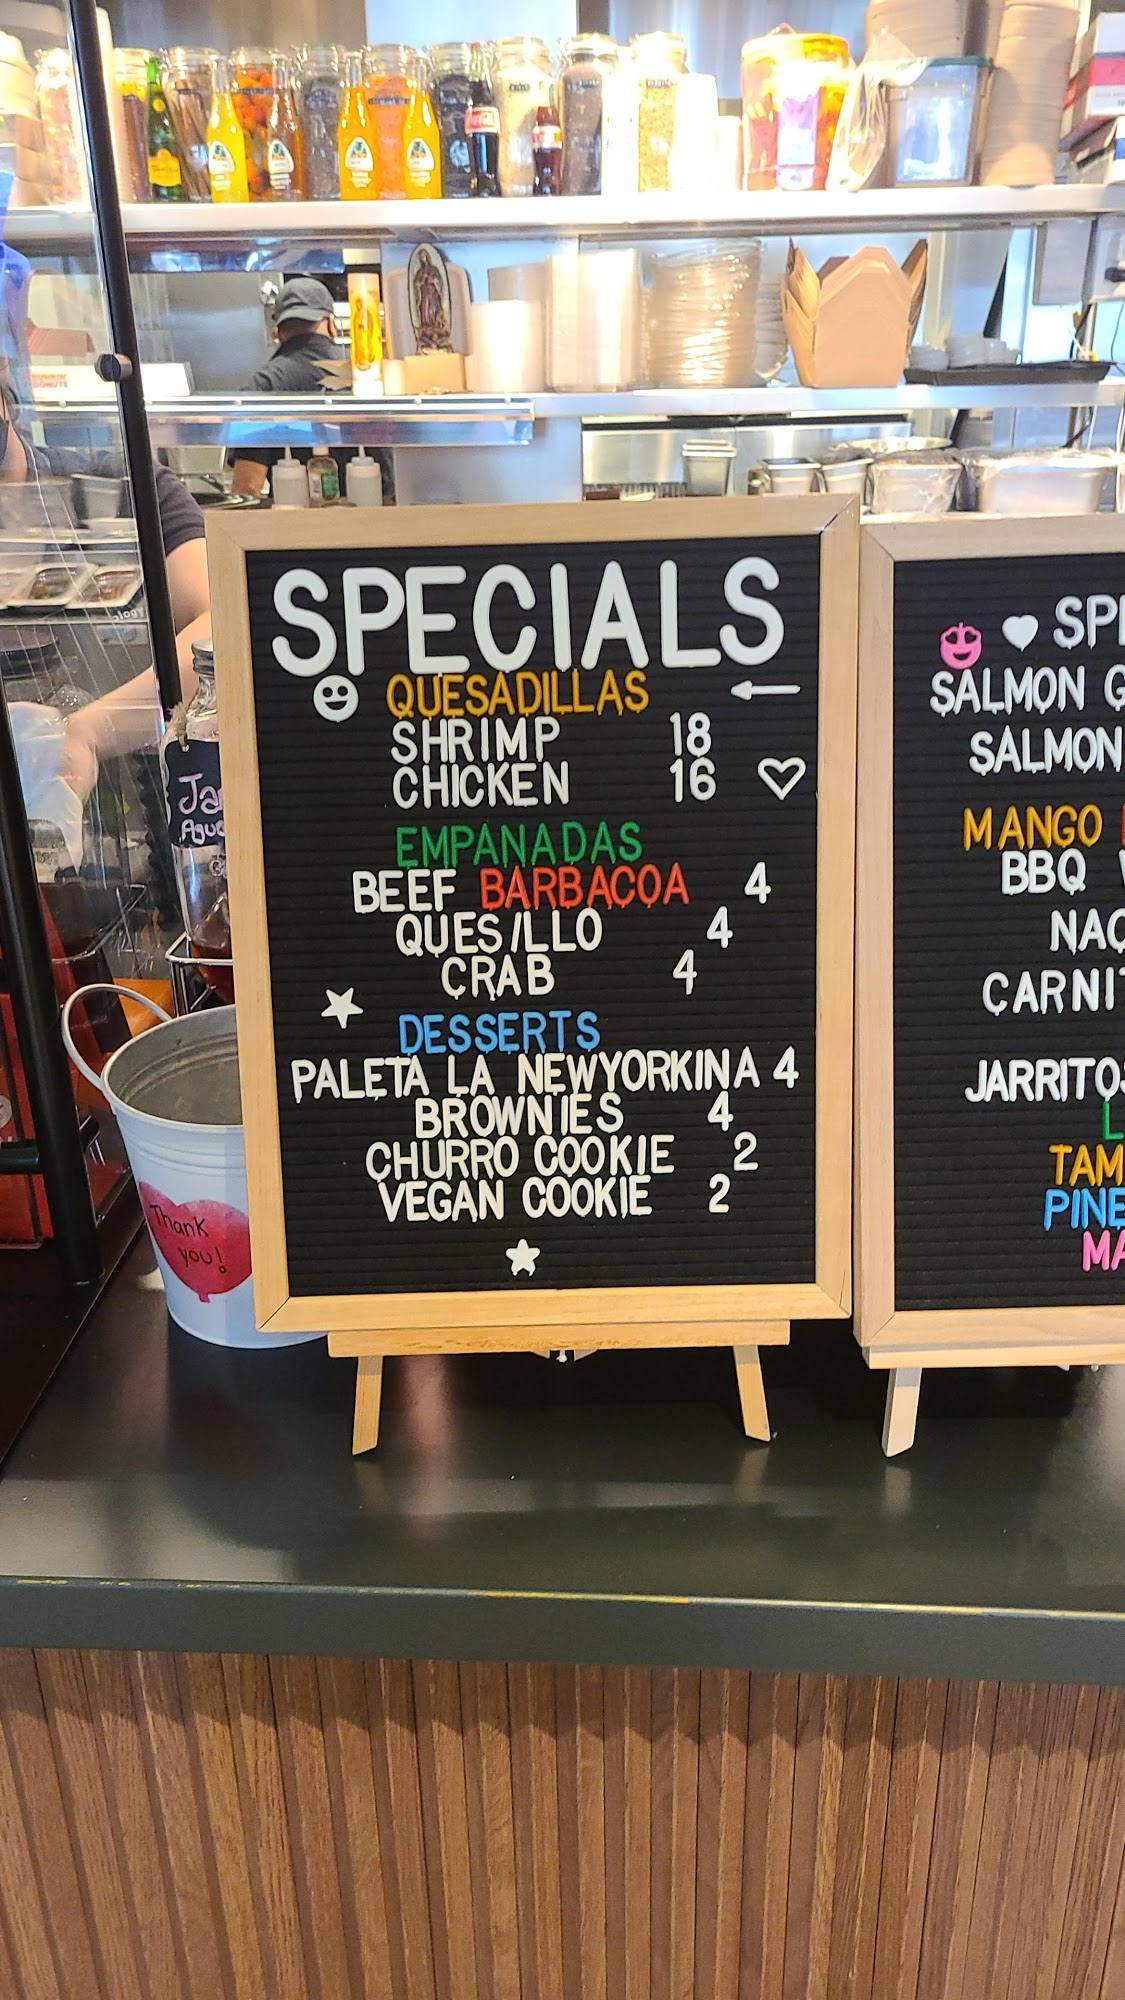 SPECIALS
QUESADILLAS
SHRIMP 18
CHICKEN 16
EMPANADAS
BEEF BARBACOA 4
QUESILLO 4
CRAB 4
DESSERTS
PALETA LA NEWYORKINA 4
BROWNIES 4
CHURRO COOKIE 2
VEGAN COOKIE 2
SALMON
SALMON
MANGO
BBQ
JARRITOS
Thank
you!